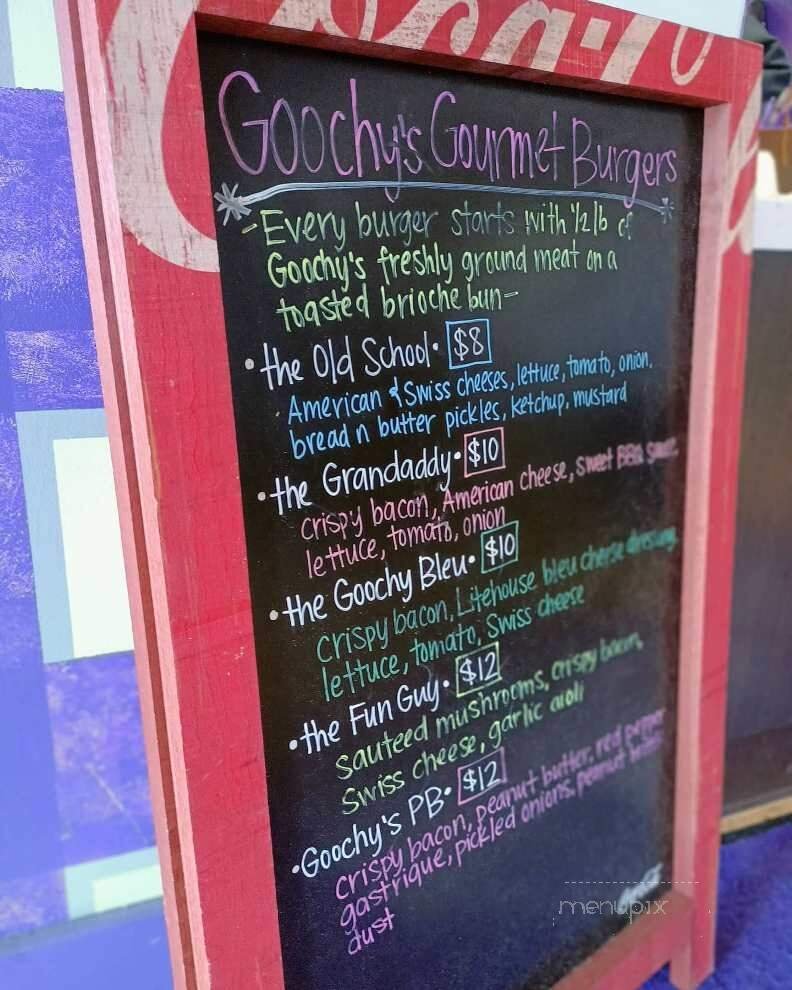 Coca-Co
Goochy's Gourmet Burgers
-Every burger starts with 1/2 lb of
Goochy's freshly ground meat on a
toasted brioche bun-
• the Old School • $8
American & Swiss cheeses, lettuce, tomato, onion,
bread n butter pickles, ketchup, mustard
• the Grandaddy • $10
crispy bacon, American cheese, sweet BBQ sauce,
lettuce, tomato, onion
• the Goochy Bleu • $10
crispy bacon, Litehouse bleu cheese dressing,
lettuce, tomato, Swiss cheese
• the Fun Guy • $12
sauteed mushrooms, crispy bacon,
Swiss cheese, garlic aioli
• Goochy's PB • $12
crispy bacon, peanut butter, red pepper
gastrique, pickled onions, peanut butter
dust
menupix